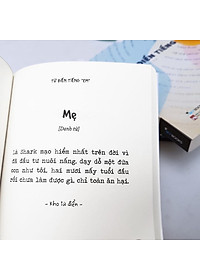 TỪ ĐIỂN TIẾNG "EM"
Mẹ
[Danh từ]
là Shark mạo hiểm nhất trên đời vì
đã đầu tư nuôi nấng, dạy dỗ một đứa
con như tôi, hai mươi mấy tuổi đầu
rồi chưa làm được gì, chỉ toàn ăn hại.
- Kho là đến -
ĐIỂN TIẾNG